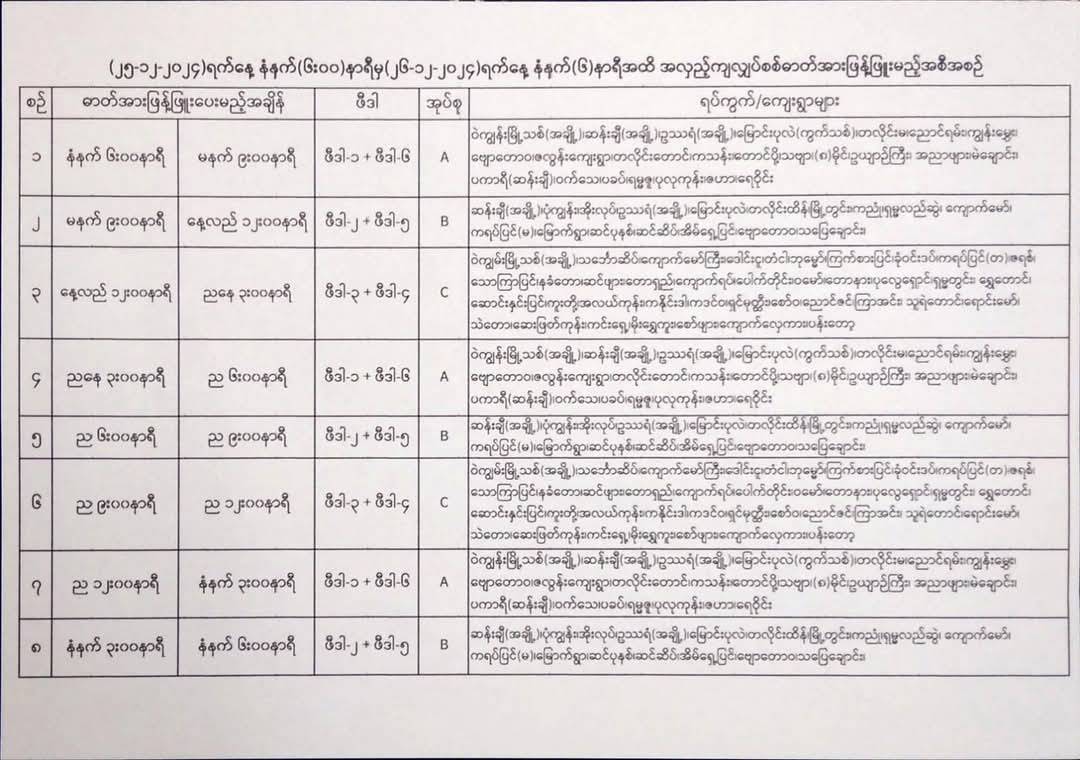 (၂၅-၁၂-၂၀၂၄)ရက်နေ့ နံနက်(၆း၀၀)နာရီမှ(၂၆-၁၂-၂၀၂၄)ရက်နေ့ နံနက်(၆)နာရီအထိ အလှည့်ကျလျှပ်စစ်ဓာတ်အားဖြန့်ဖြူးမည့်အစီအစဉ်
စဉ် ဓာတ်အားဖြန့်ဖြူးပေးမည့်အချိန် ဖီဒါ အုပ်စု ရပ်ကွက်/ကျေးရွာများ
၁ နံနက် ၆း၀၀နာရီ မနက် ၉း၀၀နာရီ ဖီဒါ-၁ + ဖီဒါ-၆ A
ဝဲကျွန်းမြို့သစ်(အချို့)၊ဆန်းချီ(အချို့)၊ဥဿရံ(အချို့)၊မြောင်းပုလဲ(ကွက်သစ်)၊တလိုင်းမ၊ညောင်ရမ်း၊ကျွန်းမွှေး၊
ဗျောတောဝ၊ဇလွန်းကျေးရွာ၊တလိုင်းတောင်၊ကသန်း၊တောင်ပို့၊သဗျာ၊(၈)မိုင်၊ဥယျာဉ်ကြီး၊ အညာဖျား၊မဲချောင်း၊
ပကာရီ(ဆန်းချီ)၊ဝက်သေ၊ပခပ်၊ရမ္မဇူ၊ပုလုကုန်း၊ဇဟာ၊ရေဝိုင်း
၂ မနက် ၉း၀၀နာရီ နေ့လည် ၁၂း၀၀နာရီ ဖီဒါ-၂ + ဖီဒါ-၅ B
ဆန်းချီ(အချို့)၊ပုံကျွန်း၊အိုးလုပ်၊ဥဿရံ(အချို့)၊မြောင်းပုလဲ၊တလိုင်းထိန်၊မြို့တွင်း၊ကညုံ၊ရှမ္မလည်ဆွဲ၊ ကျောက်မော်၊
ကရပ်ပြင်(မ)၊မြောက်ရွာ၊ဆင်ပုနစ်၊ဆင်ဆိပ်၊အိမ်ရှေ့ပြင်၊ဗျောတောဝ၊သပြေချောင်း၊
၃ နေ့လည် ၁၂း၀၀နာရီ ညနေ ၃း၀၀နာရီ ဖီဒါ-၃ + ဖီဒါ-၄ C
ဝဲကျွမ်းမြို့သစ်(အချို့)၊သင်္ဘောဆိပ်၊ကျောက်မော်ကြီး၊ဒေါင်းငူ၊တံငါ၊ဘုမ္မော်၊ကြက်စားပြင်၊ခုံဝင်းဒပ်၊ကရပ်ပြင်(တ)၊ဇရစ်၊
သောကြာပြင်၊နခံတော၊ဆင်ဖျား၊တောရှည်၊ကျောက်ရပ်၊ပေါက်တိုင်း၊ဝမော်၊တောနား၊ပုလွေရှောင်၊ရှမ္မတွင်း၊ ရွှေတောင်၊
ဆောင်းနှင်းပြင်၊ကူးတို့၊အလယ်ကုန်း၊ကနိုင်းဒါ၊ကဒင်ဝ၊ရှင်မုတ္ထီး၊စော်ဝ၊ညောင်ဇင်၊ကြာအင်း၊ သူရဲတောင်၊ရောင်းမော်၊
သဲတော၊ဆေးဖြတ်ကုန်း၊ကင်းရှေ့၊မိုးရွှေကူး၊စော်ဖျား၊ကျောက်လှေကား၊ပန်းတော့
၄ ညနေ ၃း၀၀နာရီ ည ၆း၀၀နာရီ ဖီဒါ-၁ + ဖီဒါ-၆ A
ဝဲကျွန်းမြို့သစ်(အချို့)၊ဆန်းချီ(အချို့)၊ဥဿရံ(အချို့)၊မြောင်းပုလဲ(ကွက်သစ်)၊တလိုင်းမ၊ညောင်ရမ်း၊ကျွန်းမွှေး၊
ဗျောတောဝ၊ဇလွန်းကျေးရွာ၊တလိုင်းတောင်၊ကသန်း၊တောင်ပို့၊သဗျာ၊(၈)မိုင်၊ဥယျာဉ်ကြီး၊ အညာဖျား၊မဲချောင်း၊
ပကာရီ(ဆန်းချီ)၊ဝက်သေ၊ပခပ်၊ရမ္မဇူ၊ပုလုကုန်း၊ဇဟာ၊ရေဝိုင်း
၅ ည ၆း၀၀နာရီ ည ၉း၀၀နာရီ ဖီဒါ-၂ + ဖီဒါ-၅ B
ဆန်းချီ(အချို့)၊ပုံကျွန်း၊အိုးလုပ်၊ဥဿရံ(အချို့)၊မြောင်းပုလဲ၊တလိုင်းထိန်၊မြို့တွင်း၊ကညုံ၊ရှမ္မလည်ဆွဲ၊ ကျောက်မော်၊
ကရပ်ပြင်(မ)၊မြောက်ရွာ၊ဆင်ပုနစ်၊ဆင်ဆိပ်၊အိမ်ရှေ့ပြင်၊ဗျောတောဝ၊သပြေချောင်း၊
၆ ည ၉း၀၀နာရီ ည ၁၂း၀၀နာရီ ဖီဒါ-၃ + ဖီဒါ-၄ C
ဝဲကျွမ်းမြို့သစ်(အချို့)၊သင်္ဘောဆိပ်၊ကျောက်မော်ကြီး၊ဒေါင်းငူ၊တံငါ၊ဘုမ္မော်၊ကြက်စားပြင်၊ခုံဝင်းဒပ်၊ကရပ်ပြင်(တ)၊ဇရစ်၊
သောကြာပြင်၊နခံတော၊ဆင်ဖျား၊တောရှည်၊ကျောက်ရပ်၊ပေါက်တိုင်း၊ဝမော်၊တောနား၊ပုလွေရှောင်၊ရှမ္မတွင်း၊ ရွှေတောင်၊
ဆောင်းနှင်းပြင်၊ကူးတို့၊အလယ်ကုန်း၊ကနိုင်းဒါ၊ကဒင်ဝ၊ရှင်မုတ္ထီး၊စော်ဝ၊ညောင်ဇင်၊ကြာအင်း၊ သူရဲတောင်၊ရောင်းမော်၊
သဲတော၊ဆေးဖြတ်ကုန်း၊ကင်းရှေ့၊မိုးရွှေကူး၊စော်ဖျား၊ကျောက်လှေကား၊ပန်းတော့
၇ ည ၁၂း၀၀နာရီ နံနက် ၃း၀၀နာရီ ဖီဒါ-၁ + ဖီဒါ-၆ A
ဝဲကျွန်းမြို့သစ်(အချို့)၊ဆန်းချီ(အချို့)၊ဥဿရံ(အချို့)၊မြောင်းပုလဲ(ကွက်သစ်)၊တလိုင်းမ၊ညောင်ရမ်း၊ကျွန်းမွှေး၊
ဗျောတောဝ၊ဇလွန်းကျေးရွာ၊တလိုင်းတောင်၊ကသန်း၊တောင်ပို့၊သဗျာ၊(၈)မိုင်၊ဥယျာဉ်ကြီး၊ အညာဖျား၊မဲချောင်း၊
ပကာရီ(ဆန်းချီ)၊ဝက်သေ၊ပခပ်၊ရမ္မဇူ၊ပုလုကုန်း၊ဇဟာ၊ရေဝိုင်း
၈ နံနက် ၃း၀၀နာရီ နံနက် ၆း၀၀နာရီ ဖီဒါ-၂ + ဖီဒါ-၅ B
ဆန်းချီ(အချို့)၊ပုံကျွန်း၊အိုးလုပ်၊ဥဿရံ(အချို့)၊မြောင်းပုလဲ၊တလိုင်းထိန်၊မြို့တွင်း၊ကညုံ၊ရှမ္မလည်ဆွဲ၊ ကျောက်မော်၊
ကရပ်ပြင်(မ)၊မြောက်ရွာ၊ဆင်ပုနစ်၊ဆင်ဆိပ်၊အိမ်ရှေ့ပြင်၊ဗျောတောဝ၊သပြေချောင်း၊